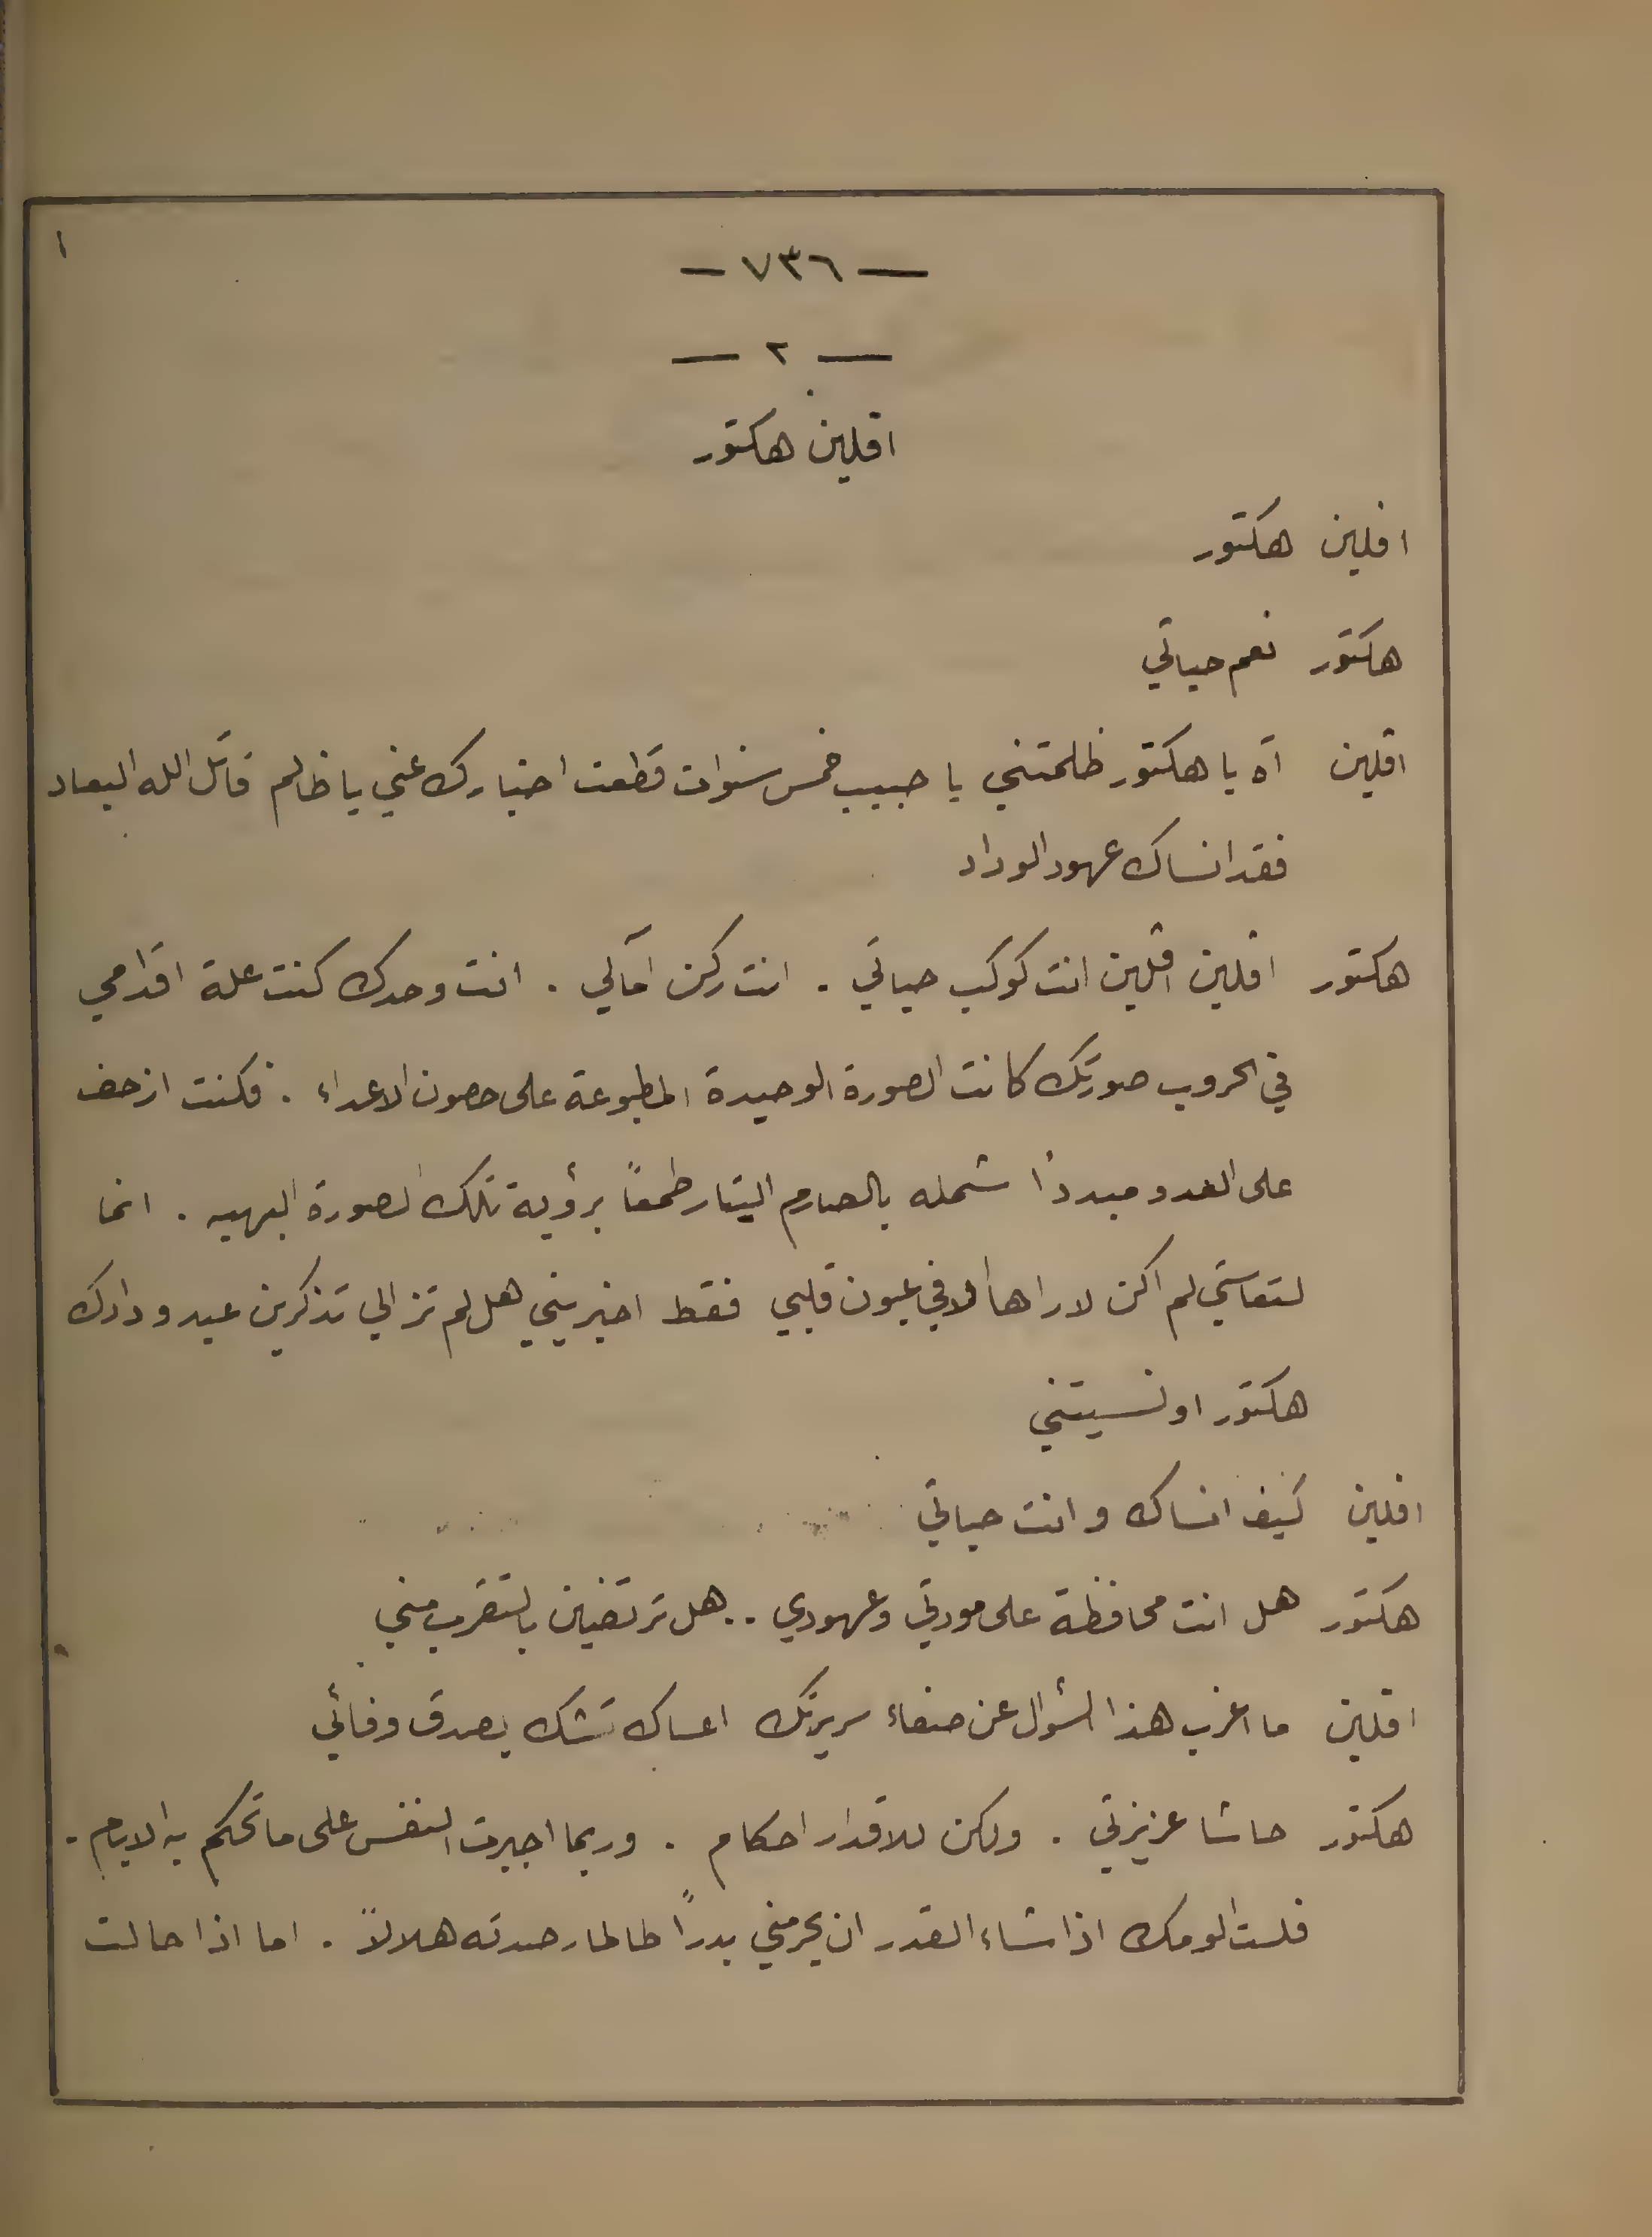 ١
— ٧٣٦ —
— ٢ —
افلين هكتور
افلين هكتور
هكتور نعم حياتي
افلين آه يا هكتور ظلمتني يا حبيب خمس سنوات قطعت اخبارك عني يا ظالم قاتل الله البعاد
فقد انساك عهود الوداد
هكتور افلين افلين انت كوكب حياتي . انت ركن آمالي . انت وحدك كنت علة اقدامي
في الحروب صورتك كانت الصورة الوحيدة المطبوعة على حصون الاعداء . فكنت ازحف
على العدو مبددًا شمله بالصارم البتار طمعًا برؤية تلك الصورة البهيه . انما
لتعاستي لم اكن لاراها الا في عيون قلبي فقط اخبريني هل لم تزالي تذكرين عهد ودادك
هكتور او نسيتني
افلين كيف انساك وانت حياتي
هكتور هل انت محافظة على مودتي وعهودي .. هل ترتضين بالتقرب مني
افلين ما اغرب هذا السؤال عن صفاء سريرتك اعساك تشك بصدق وفائي
هكتور حاشا عزيزتي . ولكن للاقدار احكام . وربما اجبرت النفس على ما تحكم به الايام .
فلست الومك اذا شاء القدر ان يحرمني بدرًا طالما رصدته هلالاً . اما اذا حالت